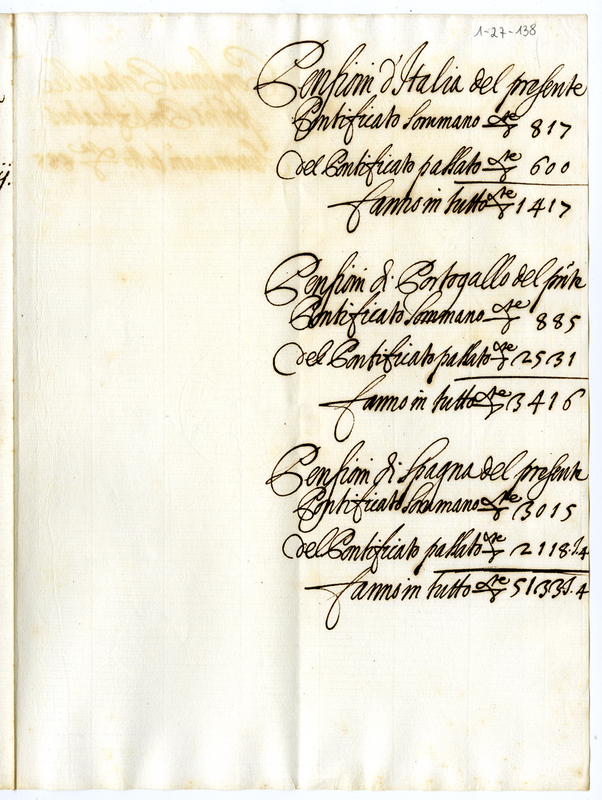 1-27-138
Pensioni d'Italia del presente
Pontificato sommano 817
del Pontificato passato 600
fanno in tutto 1417
Pensioni di Portogallo del pnte
Pontificato sommano 885
del Pontificato passato 2531
fanno in tutto 3416
Pensioni di Spagna del presente
Pontificato sommano 3015
del Pontificato passato 2118.
fanno in tutto 5133.